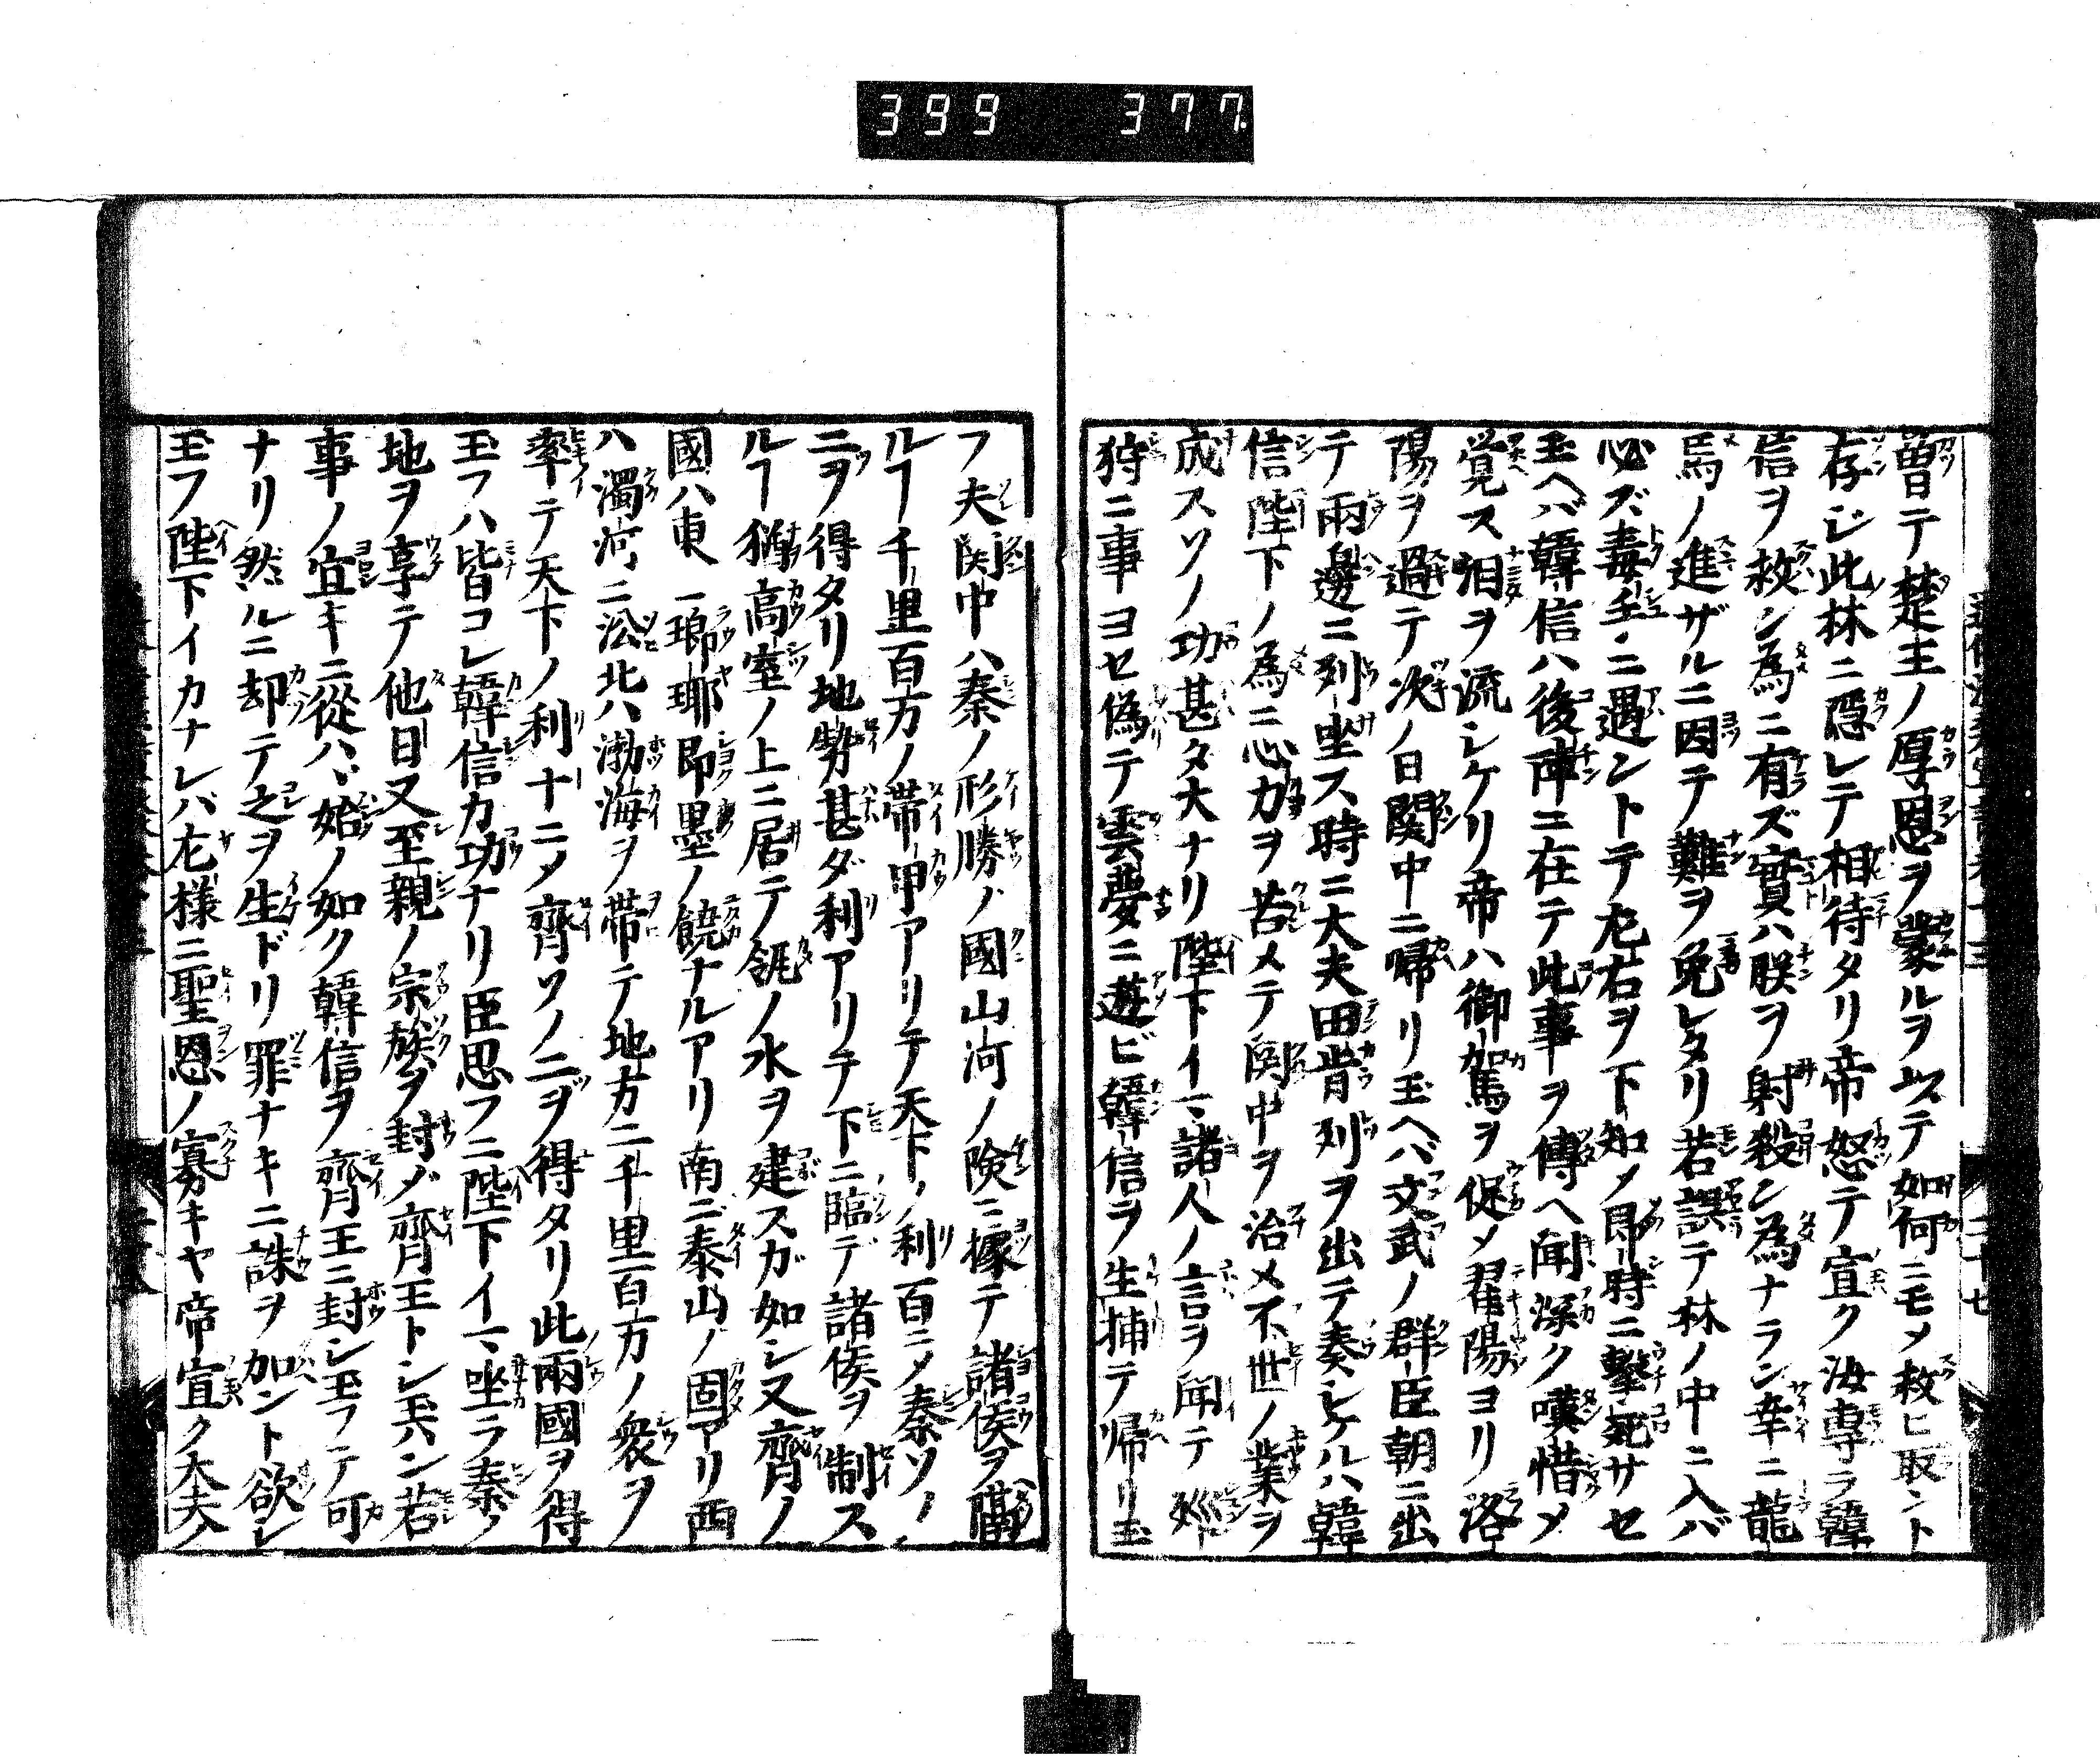 399 377
曽テ楚王ノ厚恩ヲ蒙ルヲ以テ如何ニモメ救ヒ取ント
存ジ此林ニ隠レテ相待タリ帝怒テ宣ク汝専ラ韓
信ヲ救ン為ニ有ズ實ハ朕ヲ射殺ン為ナラン幸ニ龍
馬ノ進ザルニ因テ難ヲ免レタリ若誤テ林ノ中ニ入バ
必ズ毒手ニ遇ントテ左右ヲ下知メ即時ニ撃死サセ
玉ヘバ韓信ハ後陣ニ在テ此事ヲ傳ヘ聞深ク嘆惜メ
覚ス泪ヲ流シケリ帝ハ御駕ヲ促メ翟陽ヨリ洛
陽ヲ過テ次ノ日関中ニ帰リ玉ヘバ文武ノ群臣朝ニ出
テ兩邊ニ列坐ス時ニ大夫田肯列ヲ出テ奏シケルハ韓
信陛下ノ為ニ心力ヲ苦メテ関中ヲ治メ不世ノ業ヲ
成スソノ功甚タ大ナリ陛下イマ諸人ノ言ヲ聞テ巡
狩ニ事ヨセ偽テ雲夢ニ遊ビ韓信ヲ生捕テ帰リ玉
フ夫関中ハ秦ノ形勝ノ國山河ノ険ニ據テ諸侯ヲ隔
ルヿ千里百万ノ帯甲アリテ天下ノ利百ニメ秦ソノ
二ヲ得タリ地勢甚ダ利アリテ下ニ臨デ諸侯ヲ制ス
ルヿ猶高室ノ上ニ居テ瓴ノ水ヲ建スガ如シ又齊ノ
國ハ東ニ瑯琊即墨ノ饒ナルアリ南ニ泰山ノ固アリ西
ハ濁河ニ㳂北ハ渤海ヲ帯テ地方二千里百万ノ衆ヲ
率テ天下ノ利十ニメ齊ソノ二ヲ得タリ此兩國ヲ得
玉フハ皆コレ韓信カ功ナリ臣思フニ陛下イマ坐ラ秦ノ
地ヲ享テ他日又至親ノ宗族ヲ封メ齊王トシ玉ハン若
事ノ宜キニ從ハヾ始ノ如ク韓信ヲ齊王ニ封シ玉フテ可
ナリ然ルニ却テ之ヲ生ドリ罪ナキニ誅ヲ加ント欲レ
玉フ陛下イカナレバ左様ニ聖恩ノ寡キヤ帝宣ク大夫ノ